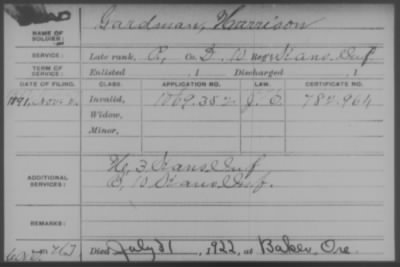 NAME OF SOLDIER: Gardman, Harrison
SERVICE: Late rank, Co. D, 10 Reg't Kans. Inf
TERM OF SERVICE: Enlisted , 1 Discharged , 1
DATE OF FILING. CLASS. APPLICATION NO. LAW. CERTIFICATE NO.
1891, Nov. Invalid, 1069.352 J. O. 782.964
Widow,
Minor,
ADDITIONAL SERVICES: H, 3 Kans Inf
10 Kans Inf.
REMARKS:
Died July 21, 1922, at Baker, Ore.